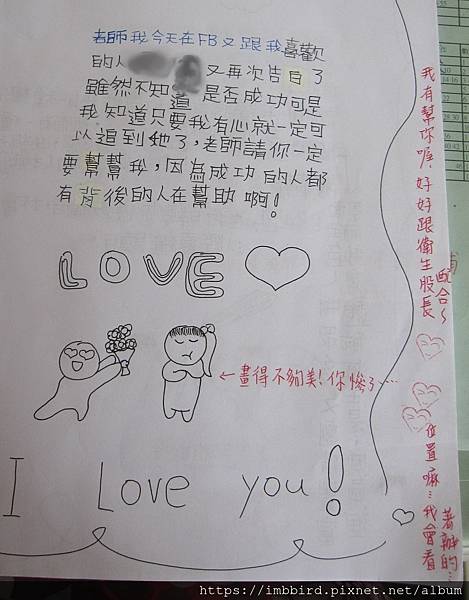 老師我今天在FB又跟我喜歡
的人 又再次告白了
雖然不知道 是否成功可是
我知道只要我有心就一定可
以追到她了,老師請你一定
要幫幫我,因為成功的人都
有背後的人在幫助啊!
LOVE
←畫得不夠美!你慘了…
I Love you!
我有幫你喔!好好跟衛生股長
配合~
位置嘛…我會看
著辦的…
https://imbbird.pixnet.net/album